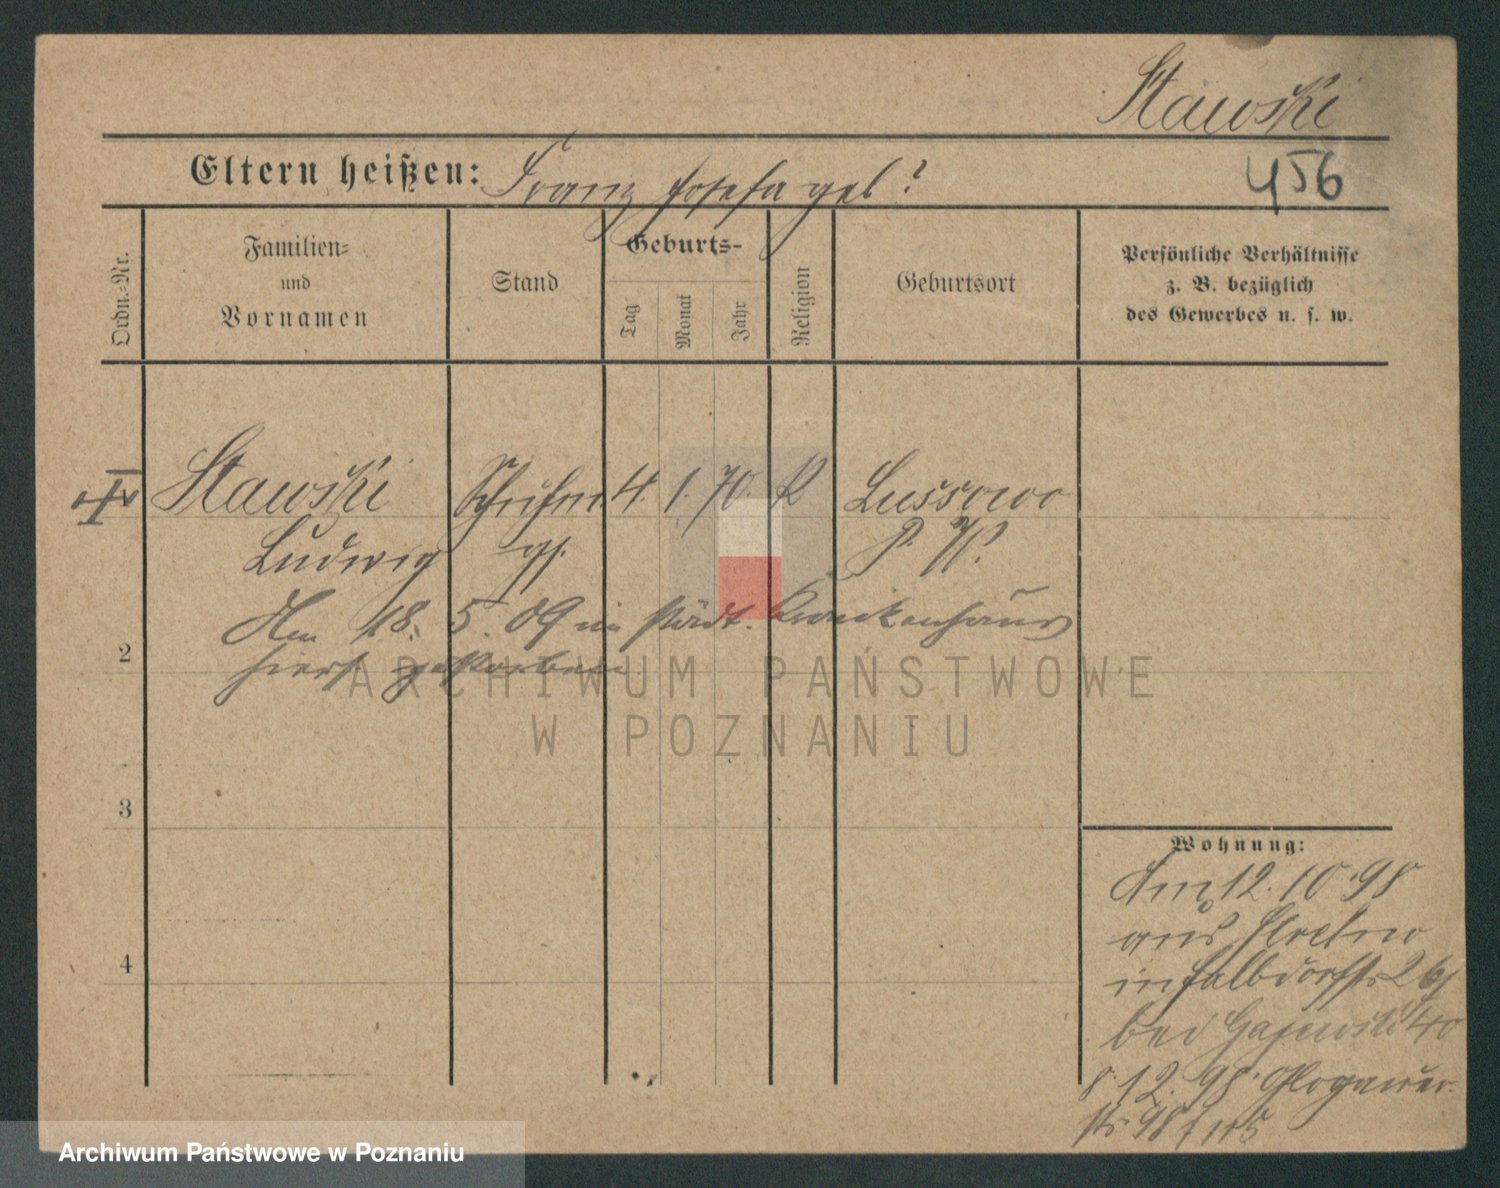 Stawski
Eltern heißen: Franz Josefa geb?
456
Ordn.-Nr.
Familien-
und
Vornamen
Stand
Geburts-
Tag
Monat
Jahr
Religion
Geburtsort
Persönliche Verhältnisse
z. B. bezüglich
des Gewerbes u. s. w.
Stawski 4. 1. 70. K Lussowo
Ludwig gs. P. W.
Am 18. 5. 09 im städt. Krankenhaus
2
hiers. gestorben
3
4
Wohnung:
Am 12. 10. 98
aus
in Halbdorfstr 26
bei Gajewski 40
8. 12. 98. Glogauer-
str 98
ARCHIWUM PAŃSTWOWE
W POZNANIU
Archiwum Państwowe w Poznaniu